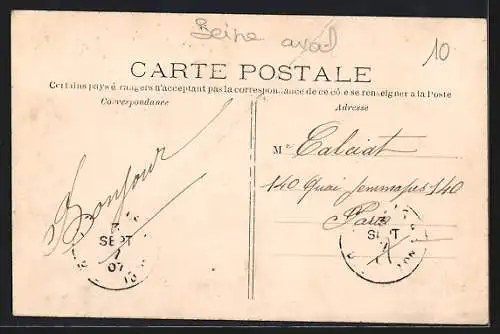 Seine aval
10
CARTE POSTALE
Certains pays étrangers n'acceptant pas la correspondance de ce côté se renseigner à la Poste
Correspondance
Adresse
Bonjour
Mr Calciat
140 Quai Jemmapes 140
Paris
SEPT
07
SEPT